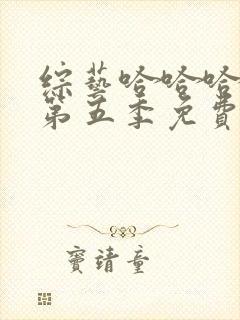 綜藝哈哈哈
第五季免費
竇靖童